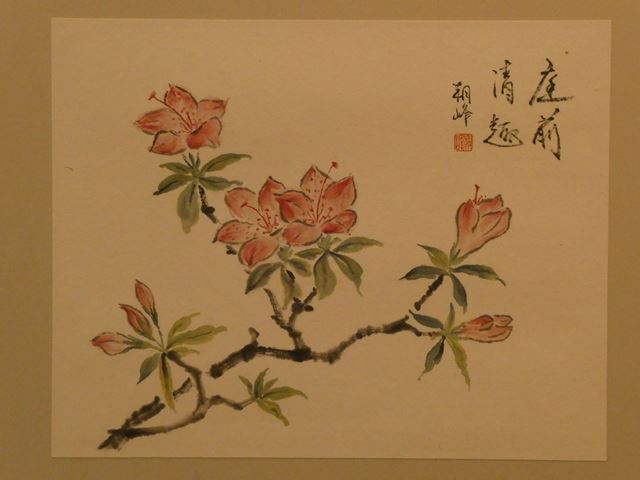 庭前
清趣
朝峰